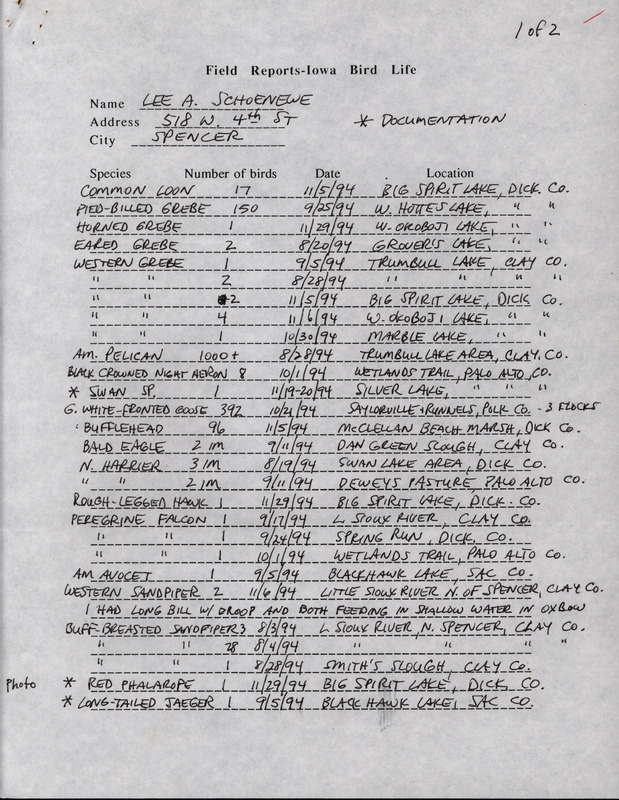 1 of 2
Field Reports-Iowa Bird Life
Name LEE A. SCHOENEWE
Address 518 W. 4th ST * DOCUMENTATION
City SPENCER
Species Number of birds Date Location
COMMON LOON 17 11/5/94 BIG SPIRIT LAKE, DICK. CO.
PIED-BILLED GREBE 150 9/25/94 W. HOTTES LAKE, " "
HORNED GREBE 1 11/29/94 W. OKOBOJI LAKE, " "
EARED GREBE 2 8/20/94 GROVER'S LAKE, " "
WESTERN GREBE 1 9/5/94 TRUMBULL LAKE, CLAY CO.
" " 2 8/28/94 " " " "
" " 2 11/5/94 BIG SPIRIT LAKE, DICK CO.
" " 4 11/6/94 W. OKOBOJI LAKE, " "
" " 1 10/30/94 MARBLE LAKE, " "
AM. PELICAN 1000+ 8/28/94 TRUMBULL LAKE AREA, CLAY, CO.
BLACK CROWNED NIGHT HERON 8 10/1/94 WETLANDS TRAIL, PALO ALTO, CO.
* SWAN SP. 1 11/19-20/94 SILVER LAKE, " " "
G. WHITE-FRONTED GOOSE 392 10/21/94 SAYLORVILLE + RUNNELS, POLK CO. - 3 FLOCKS
BUFFLEHEAD 96 11/5/94 McCLELLAN BEACH MARSH, DICK CO.
BALD EAGLE 2 im 9/11/94 DAN GREEN SLOUGH, CLAY CO.
N. HARRIER 3 im 8/19/94 SWAN LAKE AREA, DICK CO.
" " 2 im 9/11/94 DEWEYS PASTURE, PALO ALTO CO.
ROUGH-LEGGED HAWK 1 11/29/94 BIG SPIRIT LAKE, DICK. CO.
PEREGRINE FALCON 1 9/17/94 L. SIOUX RIVER, CLAY CO.
" " 1 9/24/94 SPRING RUN, DICK, CO.
" " 1 10/1/94 WETLANDS TRAIL, PALO ALTO CO.
AM AVOCET 1 9/5/94 BLACKHAWK LAKE, SAC CO.
WESTERN SANDPIPER 2 11/6/94 LITTLE SIOUX RIVER N. OF SPENCER, CLAY CO.
1 HAD LONG BILL W/ DROOP AND BOTH FEEDING IN SHALLOW WATER IN OXBOW
BUFF-BREASTED SANDPIPER 3 8/3/94 L SIOUX RIVER, N. SPENCER, CLAY CO.
" " 28 8/4/94 " " " "
" " 1 8/28/94 SMITH'S SLOUGH, CLAY CO.
Photo * RED PHALAROPE 1 11/29/94 BIG SPIRIT LAKE, DICK CO.
* LONG-TAILED JAEGER 1 9/5/94 BLACK HAWK LAKE, SAC CO.